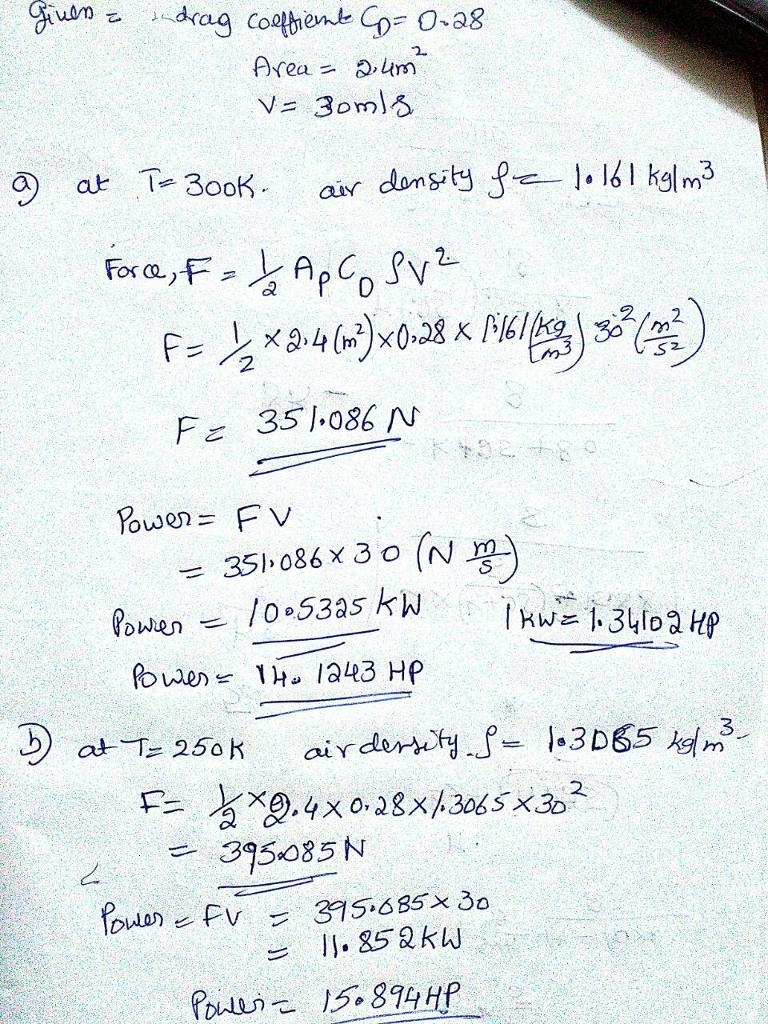 Given = drag coefficient C_D = 0.28
Area = 2.4m²
V = 30m/s
a) at T = 300K. air density ρ = 1.161 kg/m³
Force, F = 1/2 A_P C_D ρV²
F = 1/2 × 2.4 (m²) × 0.28 × 1.161 (kg/m³) 30² (m²/s²)
F = 351.086 N
Power = FV
= 351.086 × 30 (N m/s)
Power = 10.5325 kW 1 kW = 1.34102 HP
Power = 14.1243 HP
b) at T = 250K air density ρ = 1.3065 kg/m³
F = 1/2 × 2.4 × 0.28 × 1.3065 × 30²
= 395.085 N
Power = FV = 395.085 × 30
= 11.852 KW
Power = 15.894 HP